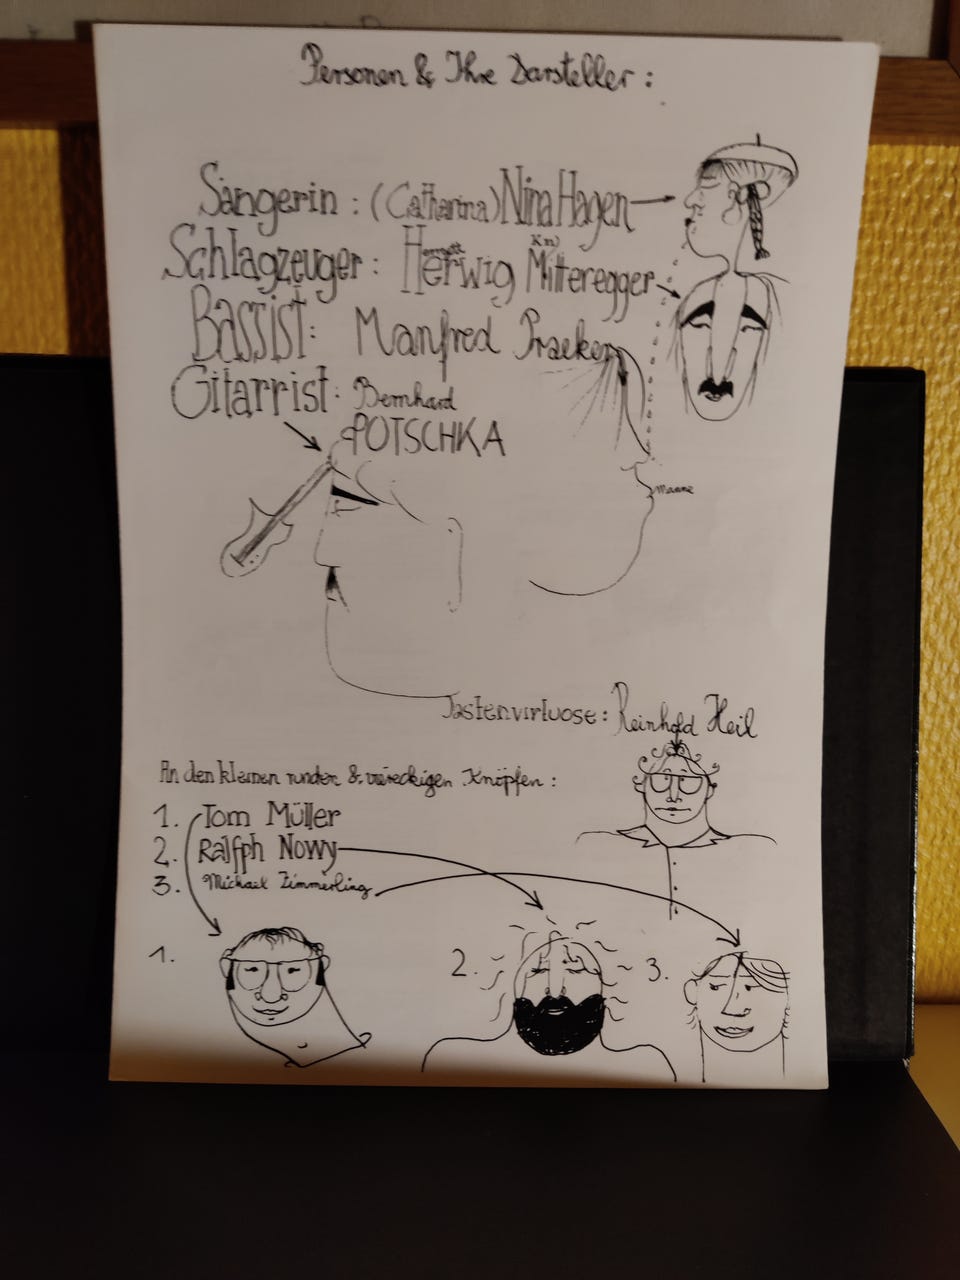 Personen & Ihre Darsteller:
Sängerin: (Catharina) Nina Hagen
Schlagzeuger: Herwig Mitteregger
Bassist: Manfred Praeker
Gitarrist: Bernhard
POTSCHKA
Manne
Tastenvirtuose: Reinhold Heil
An den kleinen runden & viereckigen Knöpfen:
1. Tom Müller
2. Ralfph Nowy
3. Michael Zimmerling
1.
2.
3.